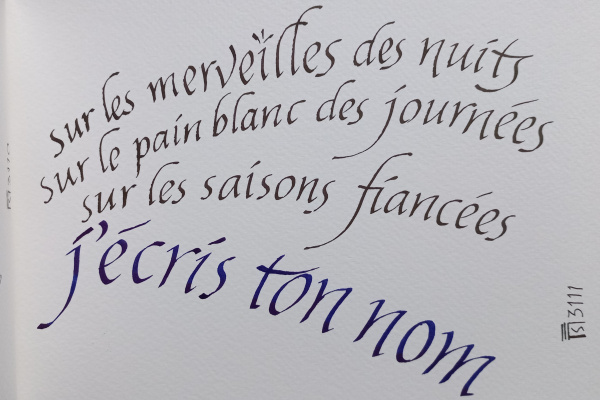 sur les merveilles des nuits
sur le pain blanc des journées
sur les saisons fiancées
j'écris ton nom
3111